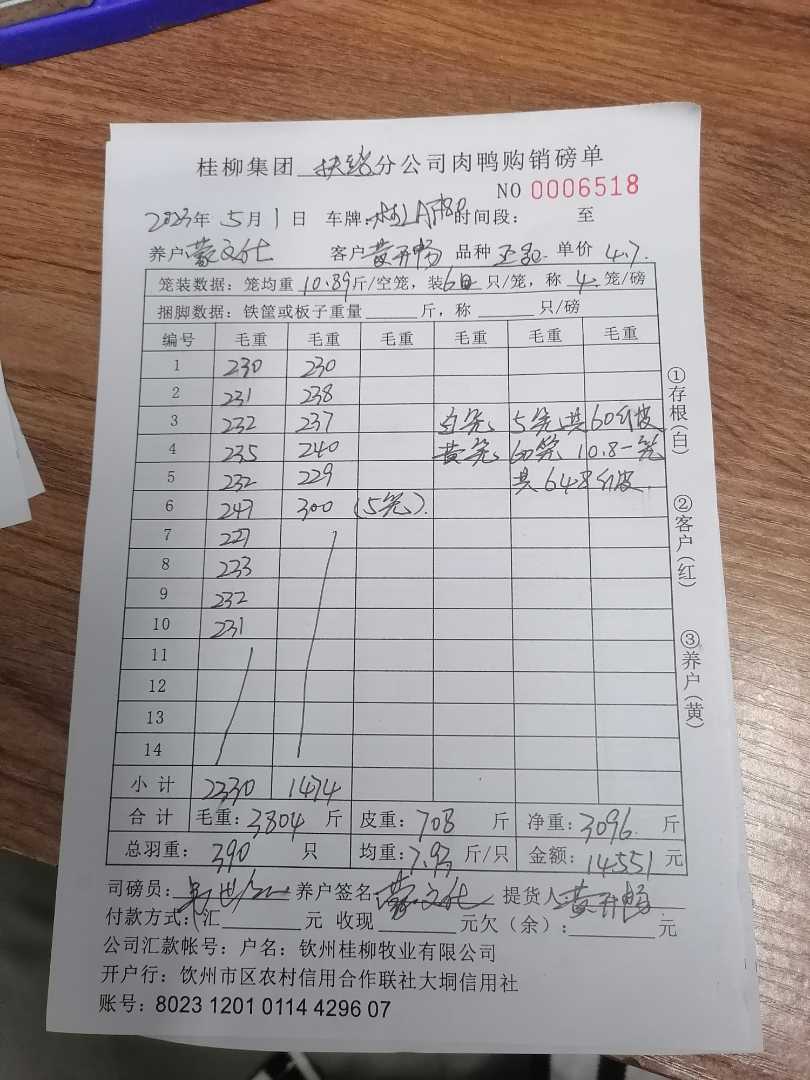 桂柳集团 扶绥 分公司肉鸭购销磅单
NO 0006518
2023年 5月 1日 车牌: 时间段: 至
养户 蒙文化 客户 黄开畅 品种 单价 4.7
笼装数据:笼均重 10.89 斤/空笼,装 6 只/笼,称 4 笼/磅
捆脚数据:铁筐或板子重量 斤,称 只/磅
编号 毛重 毛重 毛重 毛重 毛重 毛重
1 230 230
2 231 238
3 232 237 白笼 5笼 共60斤皮
4 235 240 黄笼 60笼 10.8一笼
5 232 229 共648斤皮
6 247 300 (5笼)
7 227
8 233
9 232
10 231
11
12
13
14
小计 2330 1474
合计 毛重:3804 斤 皮重:708 斤 净重:3096 斤
总羽重:390 只 均重:7.93 斤/只 金额:14551 元
司磅员: 养户签名 蒙文化 提货人 黄开畅
付款方式:汇 元 收现 元欠(余): 元
公司汇款帐号:户名:钦州桂柳牧业有限公司
开户行:钦州市区农村信用合作联社大垌信用社
账号:8023 1201 0114 4296 07
①存根(白)
②客户(红)
③养户(黄)